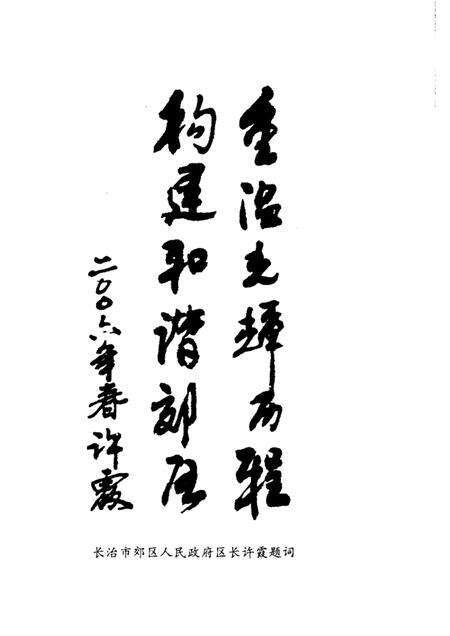 重温光辉历程
构建和谐郊区
二〇〇六年春 许霞
长治市郊区人民政府区长许霞题词